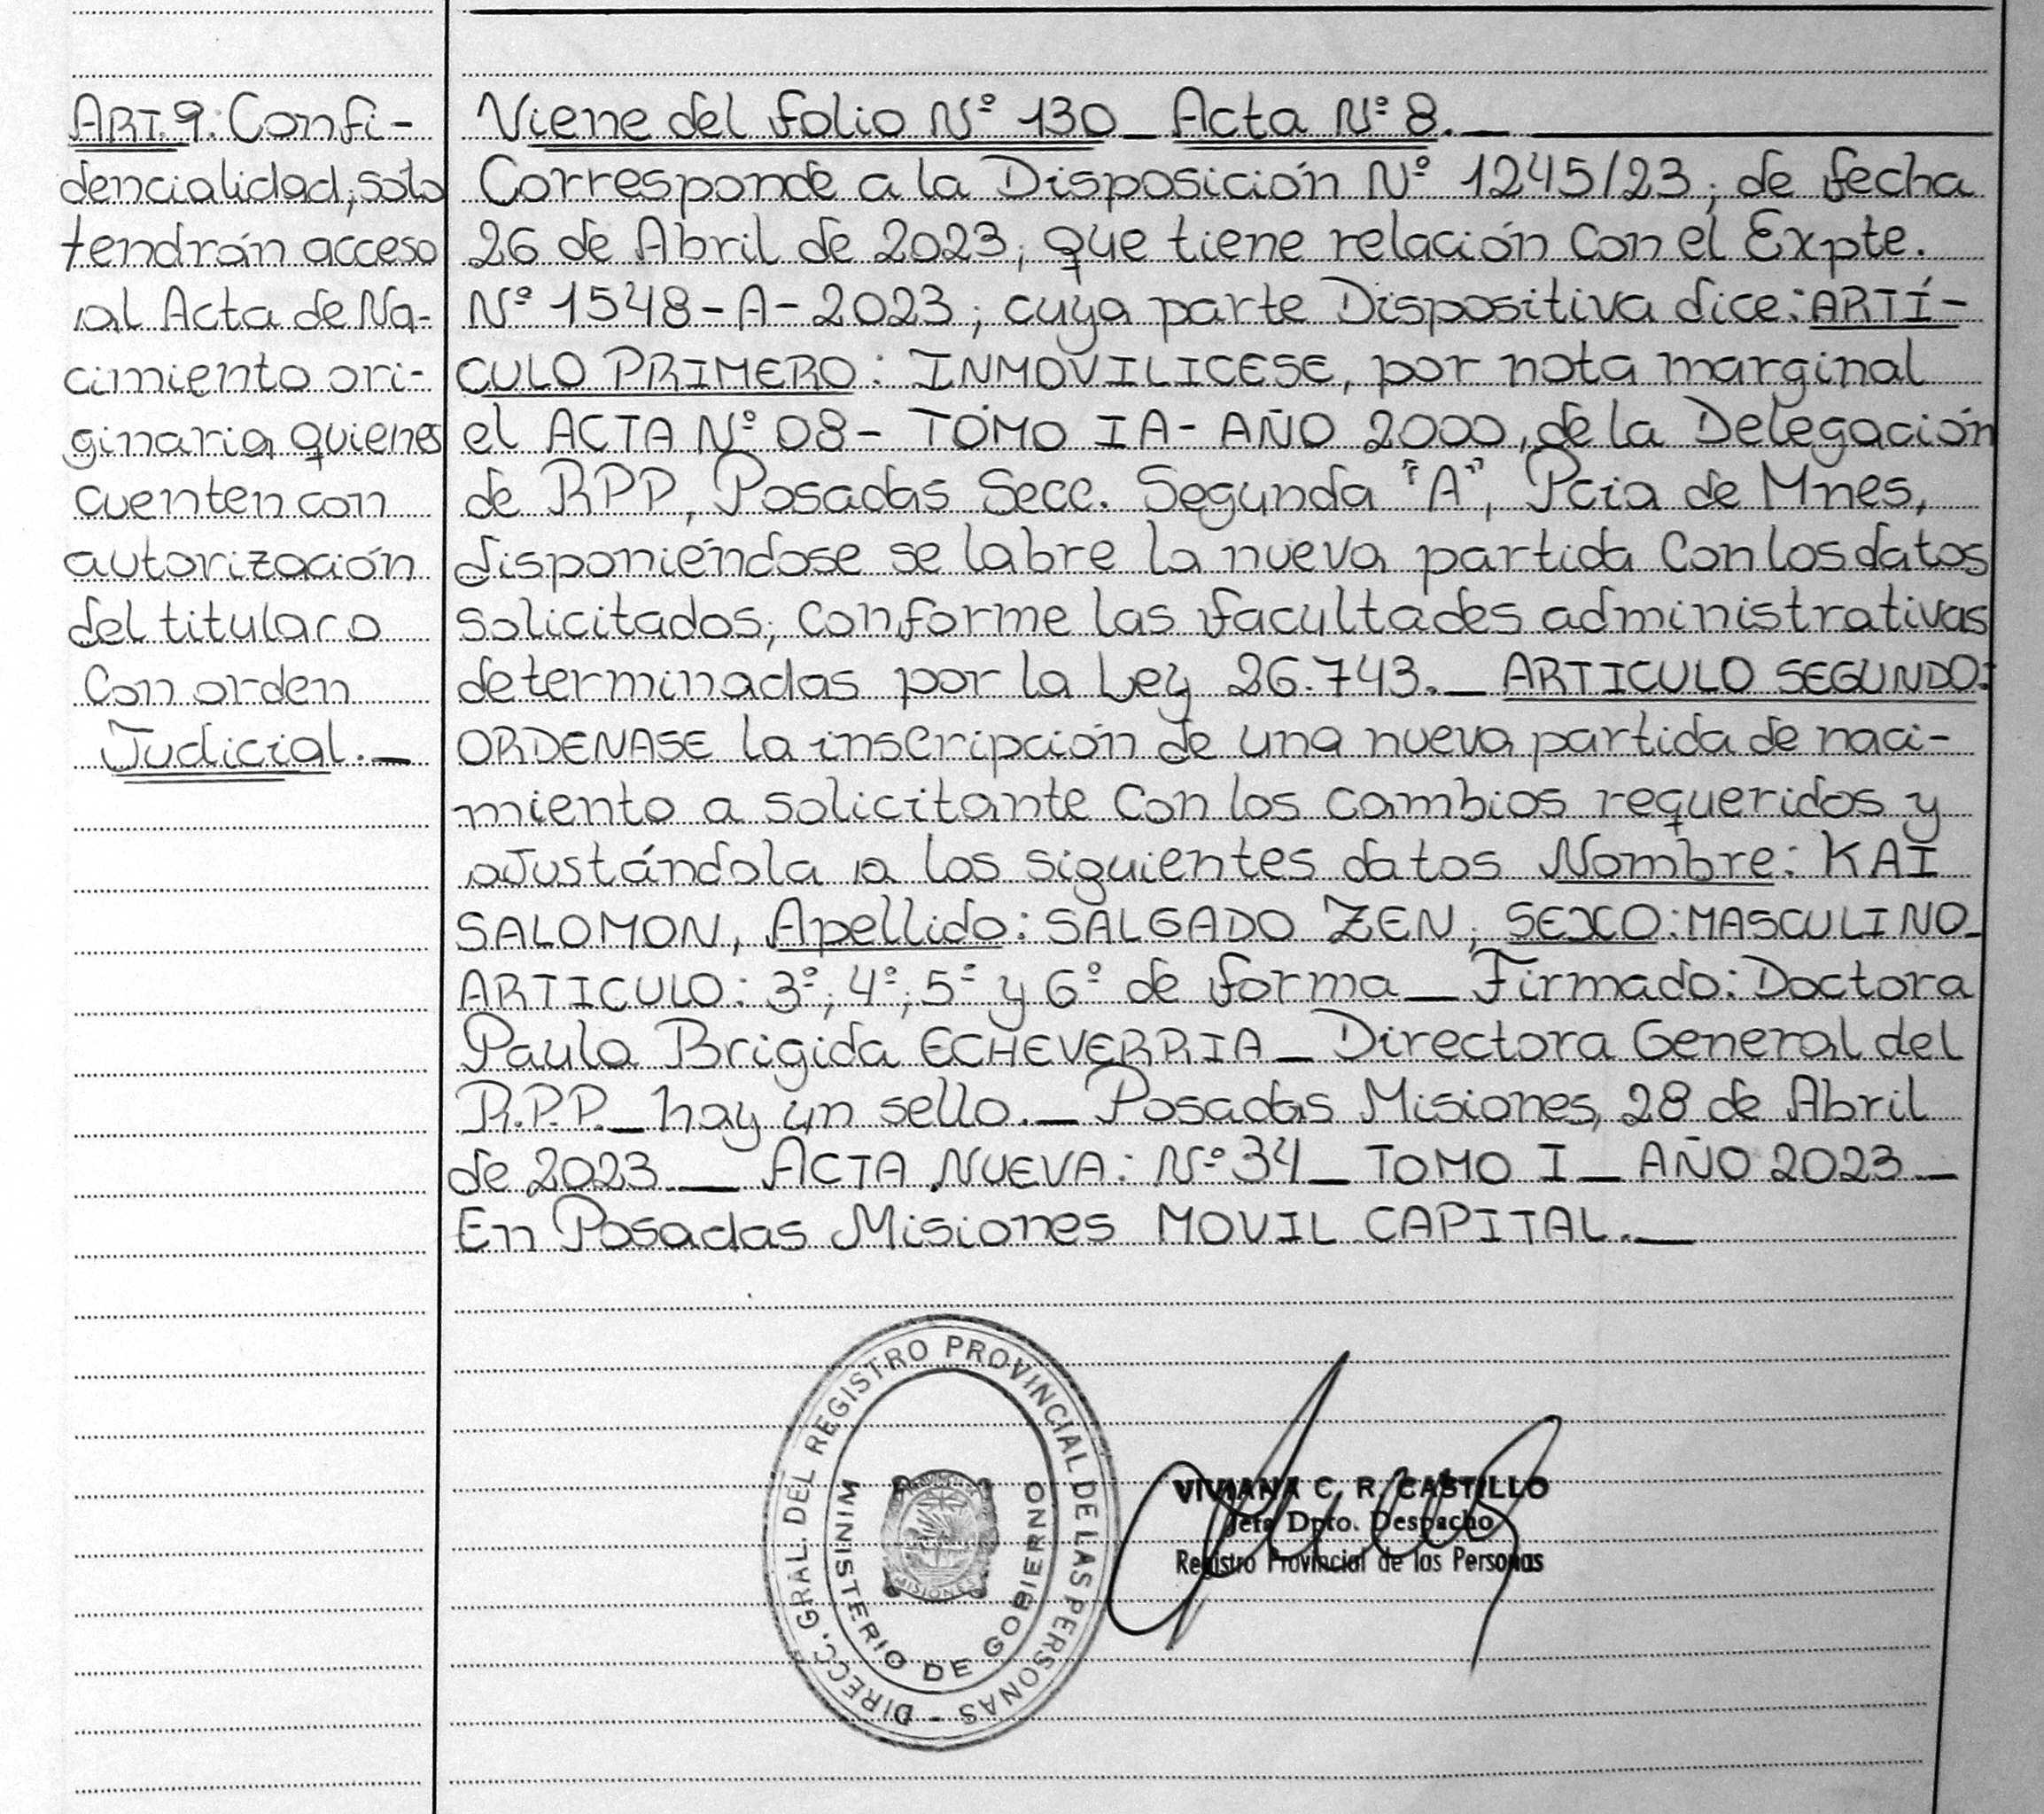 ART. 9: Confi-
dencialidad; solo
tendrán acceso
al Acta de Na-
cimiento ori-
ginaria quienes
cuenten con
autorización
del titular o
con orden
Judicial._
Viene del folio Nº 130_ Acta Nº 8._
Corresponde a la Disposición Nº 1245/23, de fecha
26 de Abril de 2023, que tiene relación con el Expte.
Nº 1548-A-2023; cuya parte Dispositiva dice: ARTÍ-
CULO PRIMERO: INMOVILICESE, por nota marginal
el ACTA Nº 08- TOMO IA- AÑO 2000, de la Delegación
de RPP, Posadas Secc. Segunda "A", Pcia de Mnes,
disponiéndose se labre la nueva partida con los datos
solicitados, conforme las facultades administrativas
determinadas por la Ley 26.743._ ARTICULO SEGUNDO:
ORDENASE la inscripción de una nueva partida de naci-
miento a solicitante con los cambios requeridos y
ajustándola a los siguientes datos Nombre: KAI
SALOMON, Apellido: SALGADO ZEN; SEXO: MASCULINO_
ARTICULO: 3º; 4º; 5º y 6º de forma_ Firmado: Doctora
Paula Brigida ECHEVERRIA_ Directora General del
R.P.P._ hay un sello._ Posadas Misiones, 28 de Abril
de 2023_ ACTA NUEVA: Nº 34_ TOMO I_ AÑO 2023_
En Posadas Misiones MOVIL CAPITAL._
DIRECC. GRAL. DEL REGISTRO PROVINCIAL DE LAS PERSONAS -
MINISTERIO DE GOBIERNO
MISIONES
VIVIANA C. R. CASTILLO
Jefa Dpto. Despacho
Registro Provincial de las Personas